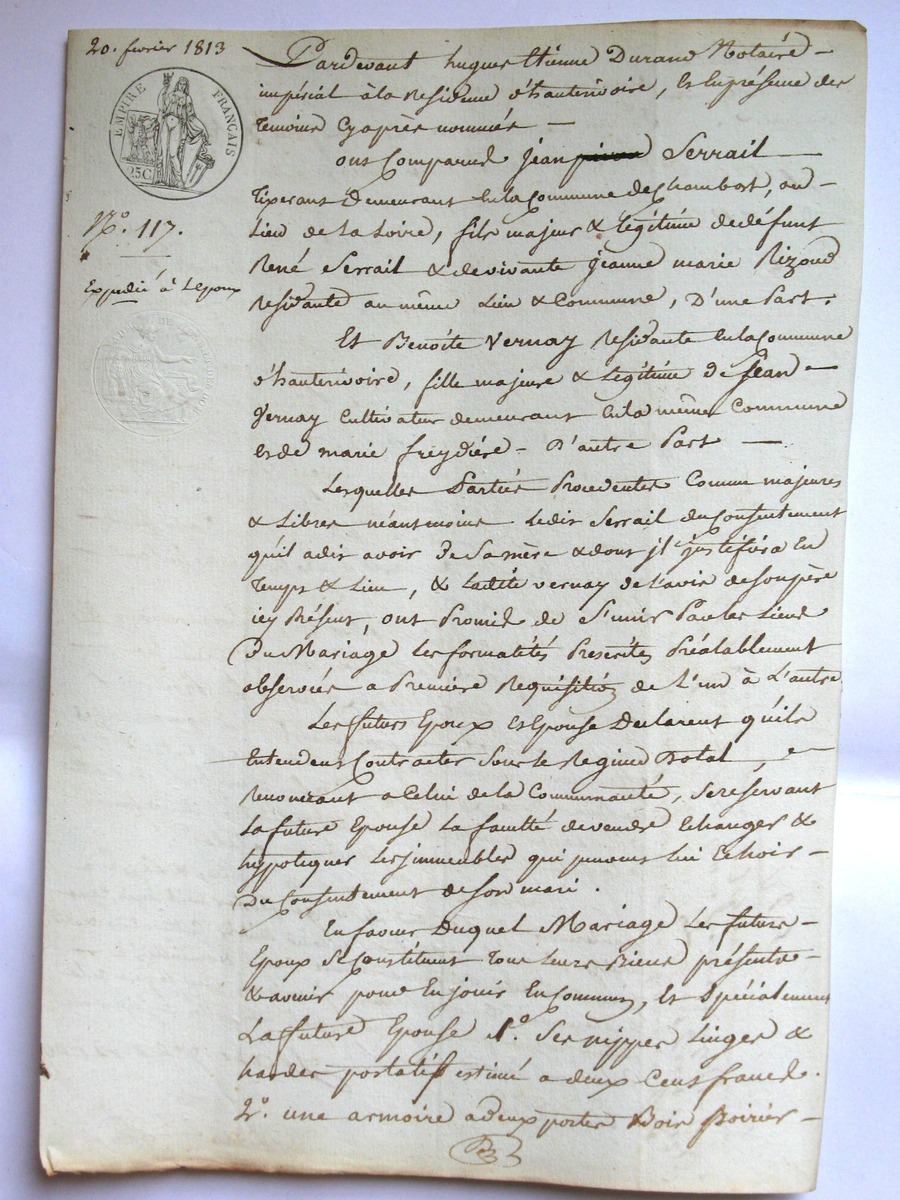 20. fevrier 1813
EMPIRE FRANÇAIS
25C
N.º 117.
Expédié à L'Epoux
Pardevant hugues Etienne Durand Notaire
impérial à la Residence d'hauterivoire, Et En présence des
Temoins Cyaprès nommés —
ont Comparus Jean Serrail
Tixerant Demeurant En la Commune de Chambost, au
Lieu de La Loire, fils majeur & légitime de défunt
René Serrail & de vivante Jeanne marie Rizoud
Residante au même Lieu & Commune, D'une Part.
Et Benoite Vernay Residante En la Commune
d'hauterivoire, fille majeure & Légitime de Jean
Vernay Cultivateur demeurant En la même Commune
et de marie freydière - D'autre Part —
Lesquelles Parties Procedentes Comme majeures
& Libres néantmoins Ledit Serrail du Consentement
qu'il a dit avoir de Sa mère & dont jl justifira En
Temps & Lieu, & Ladite vernay de L'avis de son père
icy Présent, ont Promis de S'unir Par les Liens
Du Mariage Les formalités Prescrites Préalablement
observées a Premiere Requisition de L'un à L'autre
Les futurs Epoux et Epouse Declarent qu'ils
Entendent Contracter Sous le Regime Dotal, &
Renoncent a Celui de la Communauté, Se reservant
La future Epouse La faculté de vendre Echanger &
hypotiquer Les jmmeubles qui peuvent lui Echoir
Du Consentement de son mari.
En faveur Duquel Mariage Les futurs
Epoux Se Constituent Tous Leurs Biens présents
& avenir pour En jouir En Commun, Et Spécialement
La future Epouse 1º. Ses nippes Linges &
hardes portatifs estimé a deux Cents francs.
2º. une armoire a deux portes Bois Poirier